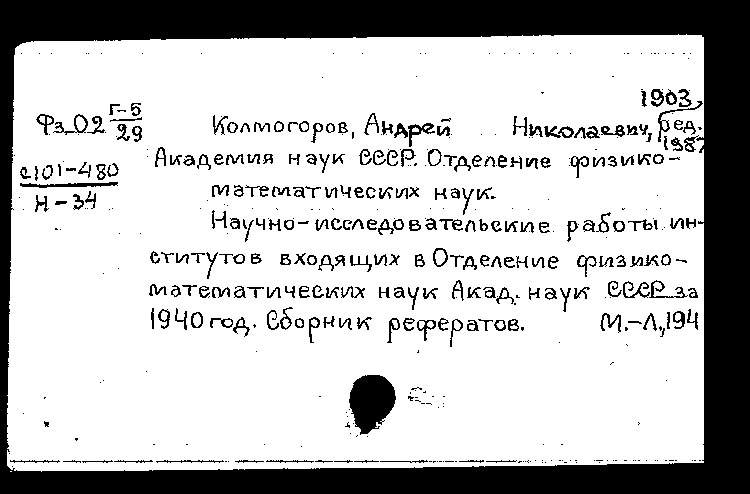 1903,
Фз_02 Г-5/29 Колмогоров, Андрей Николаевич, ред.
1987
Академия наук СССР. Отделение физико-
с101-480
математических наук.
Н-34
Научно-исследовательские работы ин-
ститутов входящих в Отделение физико-
математических наук Акад. наук СССР за
1940 год. Сборник рефератов. М.-Л., 194